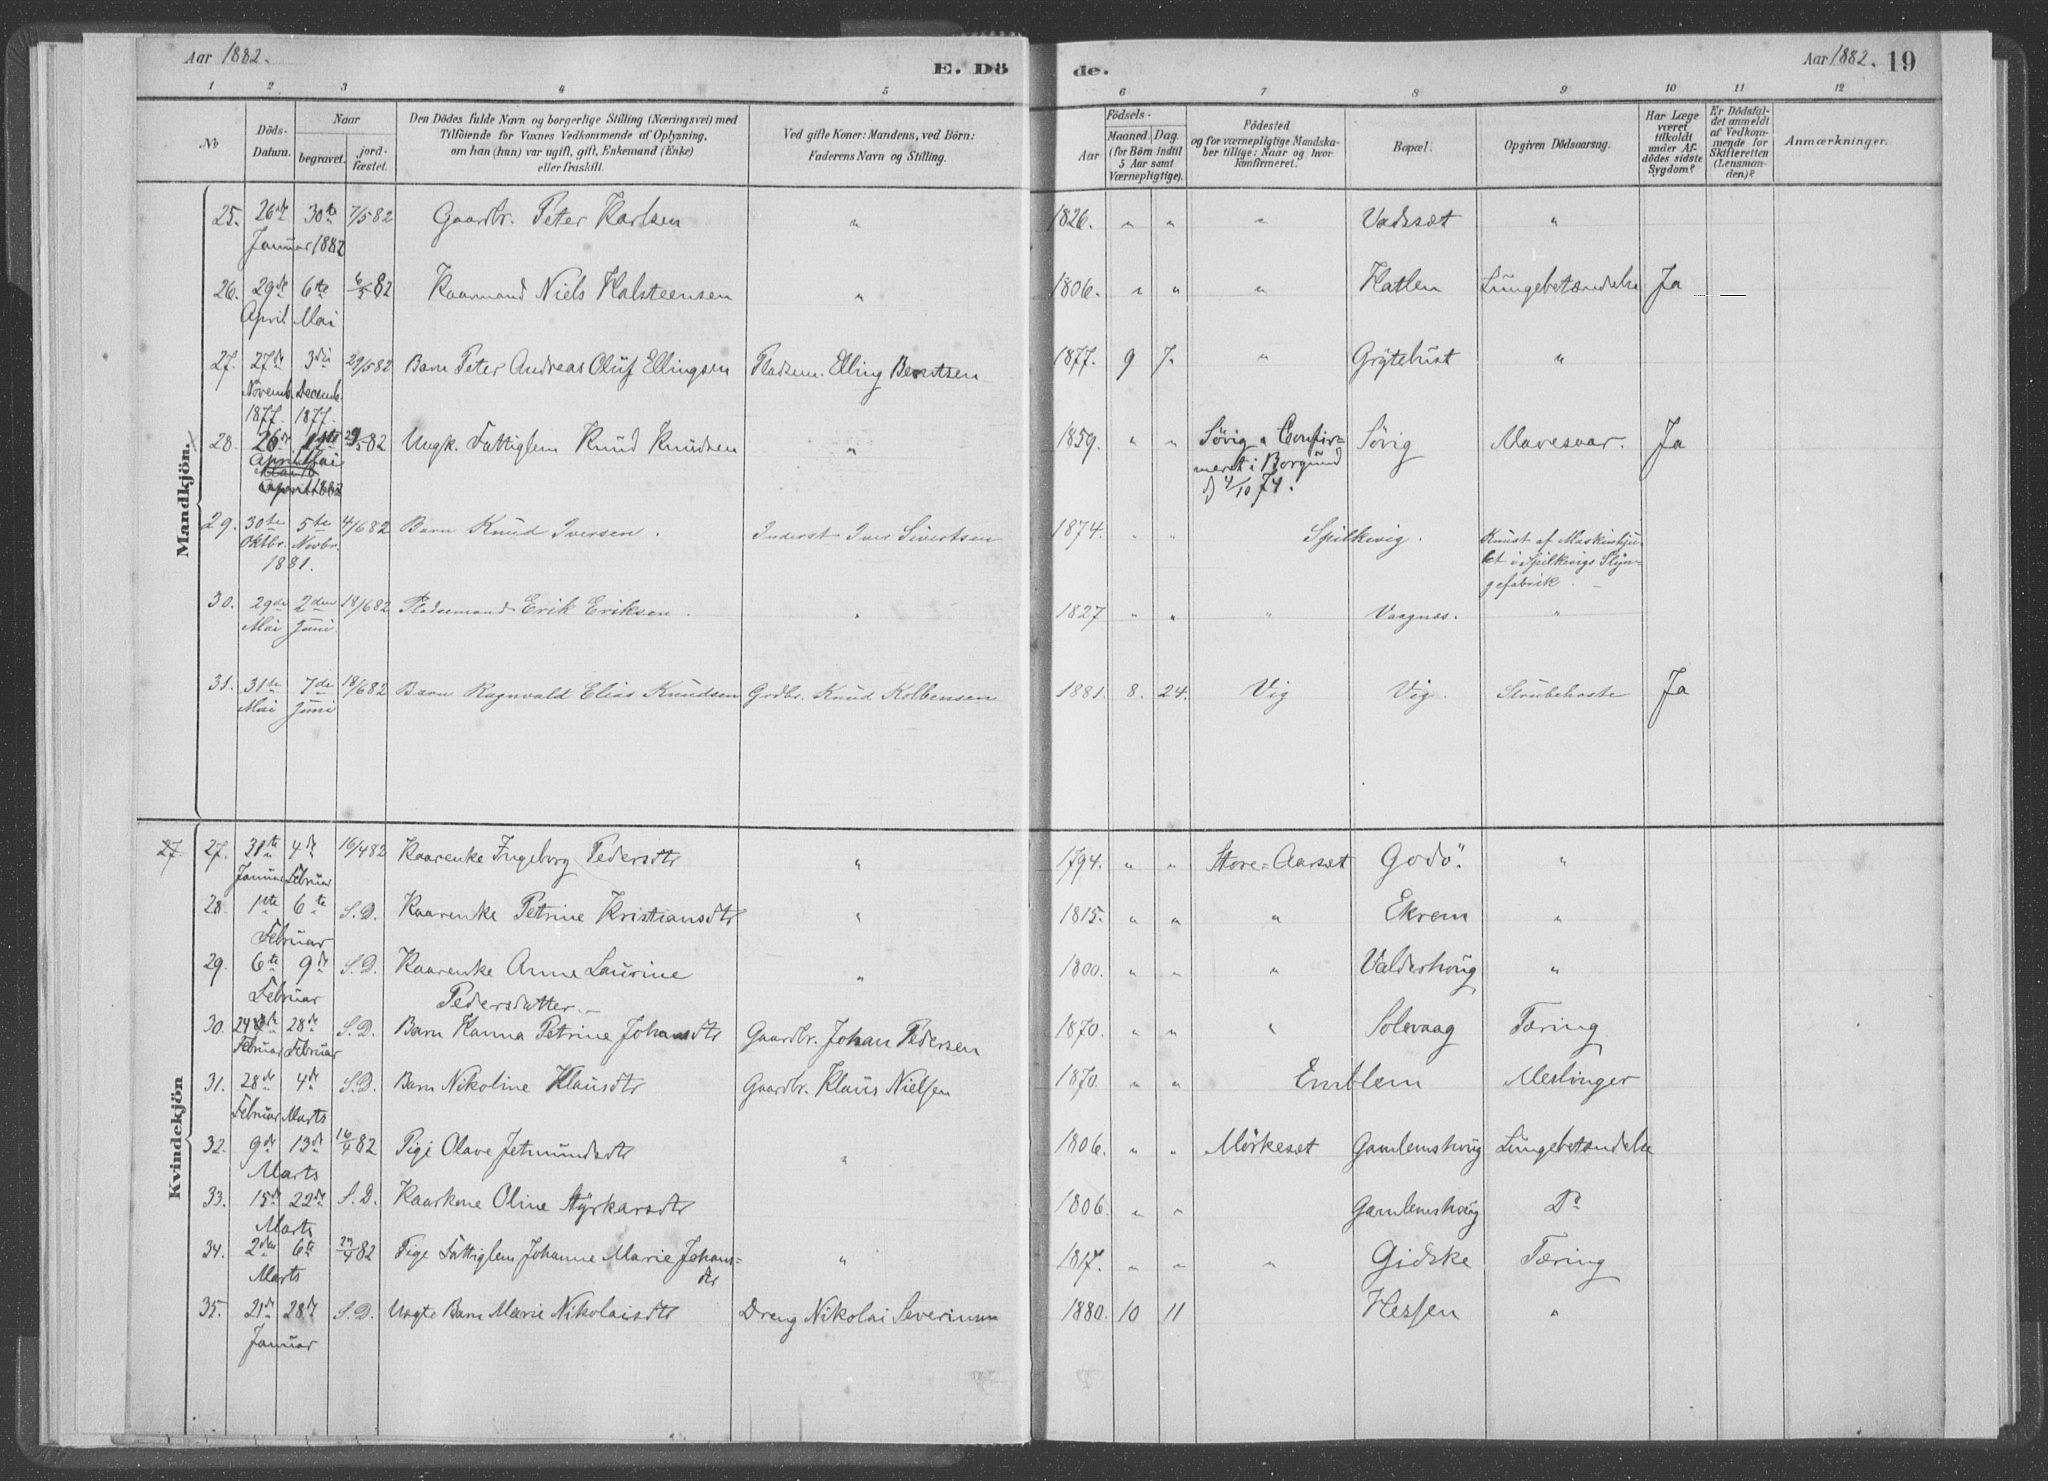 Aar 1882.
E. Dö
de.
Aar 1882. 19
1 2 3 4 5 6 7 8 9 10 11 12
No
Döds-
Datum.
Naar
begravet.
jord-
fæstet.
Den Dödes fulde Navn og borgerlige Stilling (Næringsvei) med
Tilföiende for Voxnes Vedkommende af Oplysning,
om han (hun) var ugift, gift, Enkemand (Enke)
eller fraskilt.
Ved gifte Koner: Mandens, ved Börn:
Faderens Navn og Stilling.
Födsels-
Aar
Maaned. Dag.
(for Börn indtil
5 Aar samt
Værnepligtige).
Födested
og for værnepligtige Mandska-
ber tillige: Naar og hvor
konfirmeret.
Bopæl.
Opgiven Dödsaarsag.
Har Læge
været
tilkaldt
under Af-
dödes sidste
Sygdom?
Er Dödsfal-
det anmeldt
af Vedkom-
mende for
Skifteretten
(Lensman-
den)?
Anmærkninger.
Mandkjön.
25. 26de 30te 7/5 82 Gaardbr. Peter Karlsen " 1826. " " " Vadsæt "
Januar 1882
26. 29de 6te 6/5 82 Kaarmand Niels Halsteensen " 1806. " " " Hatlen Lungebetændelse Ja
April Mai
27. 27de 3die 29/5 82 Barn Peter Andreas Oluf Ellingsen Pladsm. Elling Berntsen 1877. 9 7. " Grytebust "
Novemb. Decemb.
1877. 1877.
28. 26de 29/5 82 Ungk. Fattiglem Knud Knudsen " 1859. " " Sövig. Confir- Sövig Mavesaar. Ja
April Mai
meret i Borgund
d 4/10 74.
April 1882
29. 30te 5te 4/6 82 Barn Knud Iversen. Inderst Iver Sivertsen 1874. " " Spilkevig. Knust af Maskinhju-
Oktbr. Novbr.
let i Spilkevigs Slyn-
1881.
gefabrik.
30. 29de 2den 18/6 82 Pladsemand Erik Eriksen. " 1827 " " " Vaagnæs. "
Mai Juni
31. 31te 7de 18/6 82 Barn Ragnvald Elias Knudsen Gdbr. Knud Kolbensen 1881. 8. 24. Vig Vig. Strubehoste Ja
Mai Juni
Kvindekjön
27 27. 31te 4de 16/4 82 Kaarenke Ingeborg Pedersdtr " 1794. " " Store-Aarset Godö. "
Januar Februar
28. 1ste 6te S.D. Kaarenke Petrine Kristiansdtr " 1815. " " " Ekrem "
Februar
29. 6te 9de S.D. Kaarenke Anne Laurine " 1800. " " " Valderhoug "
Februar
Pedersdatter.
30. 24de 28de S.D. Barn Hanna Petrine Johansdtr Gaardbr. Johan Pedersen 1870. " " " Solevaag Tæring
Februar Februar
31. 28de 4de S.D. Barn Nikoline Klausdtr Gaardbr. Klaus Nielsen 1870. " " Emblem Meslinger
Februar Marts
32. 9de 13de 16/4 82 Pige Olave Jetmundsdtr " 1806. " " Mörkeset Gamlemshoug Lungebetændelse
Marts
33. 15de 22de S.D. Kaarkone Oline Styrkarsdtr 1806. " " Gamlemshoug Do
Marts
34. 2den 6te 23/4 82 Pige Fattiglem Johanne Marie Johans- " 1817. " " " Gidske Tæring
Marts
dtr
35. 21de 28de S.D. Uægte Barn Marie Nikolaisdtr Dreng Nikolai Severinsen 1880. 10 11 Hessen "
Januar